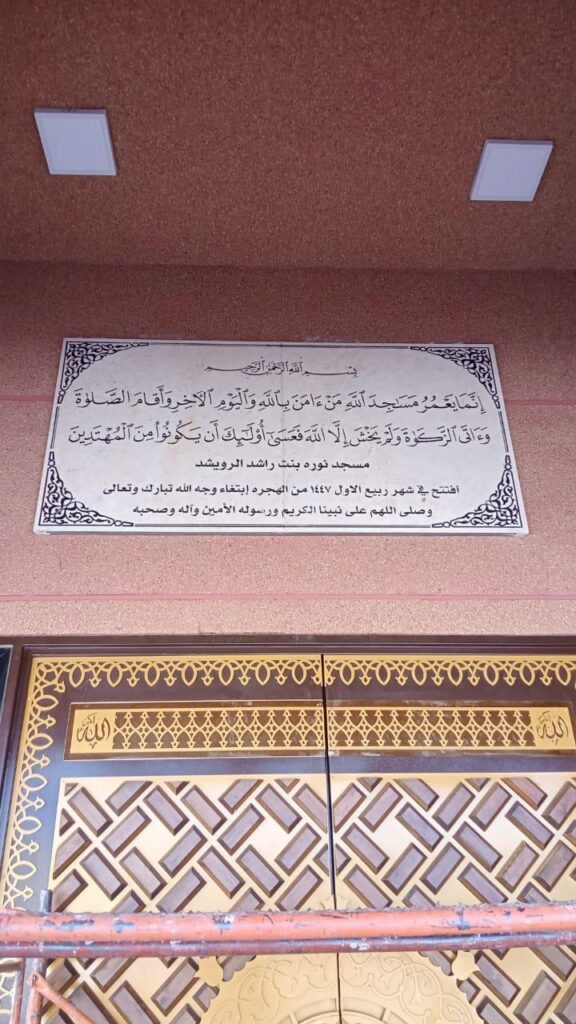 بِسْمِ اللَّهِ الرَّحْمَٰنِ الرَّحِيمِ
إِنَّمَا يَعْمُرُ مَسَٰجِدَ ٱللَّهِ مَنْ ءَامَنَ بِٱللَّهِ وَٱلْيَوْمِ ٱلْأَخِرِ وَأَقَامَ ٱلصَّلَوٰةَ
وَءَاتَى ٱلزَّكَوٰةَ وَلَمْ يَخْشَ إِلَّا ٱللَّهَ فَعَسَىٰٓ أُو۟لَٰٓئِكَ أَن يَكُونُوا۟ مِنَ ٱلْمُهْتَدِينَ
مسجد نوره بنت راشد الرويشد
افتتح في شهر ربيع الاول ١٤٤٧ من الهجره إبتغاء وجه الله تبارك وتعالى
وصلى اللهم على نبينا الكريم ورسوله الأمين وآله وصحبه
الله أكبر
الله أكبر